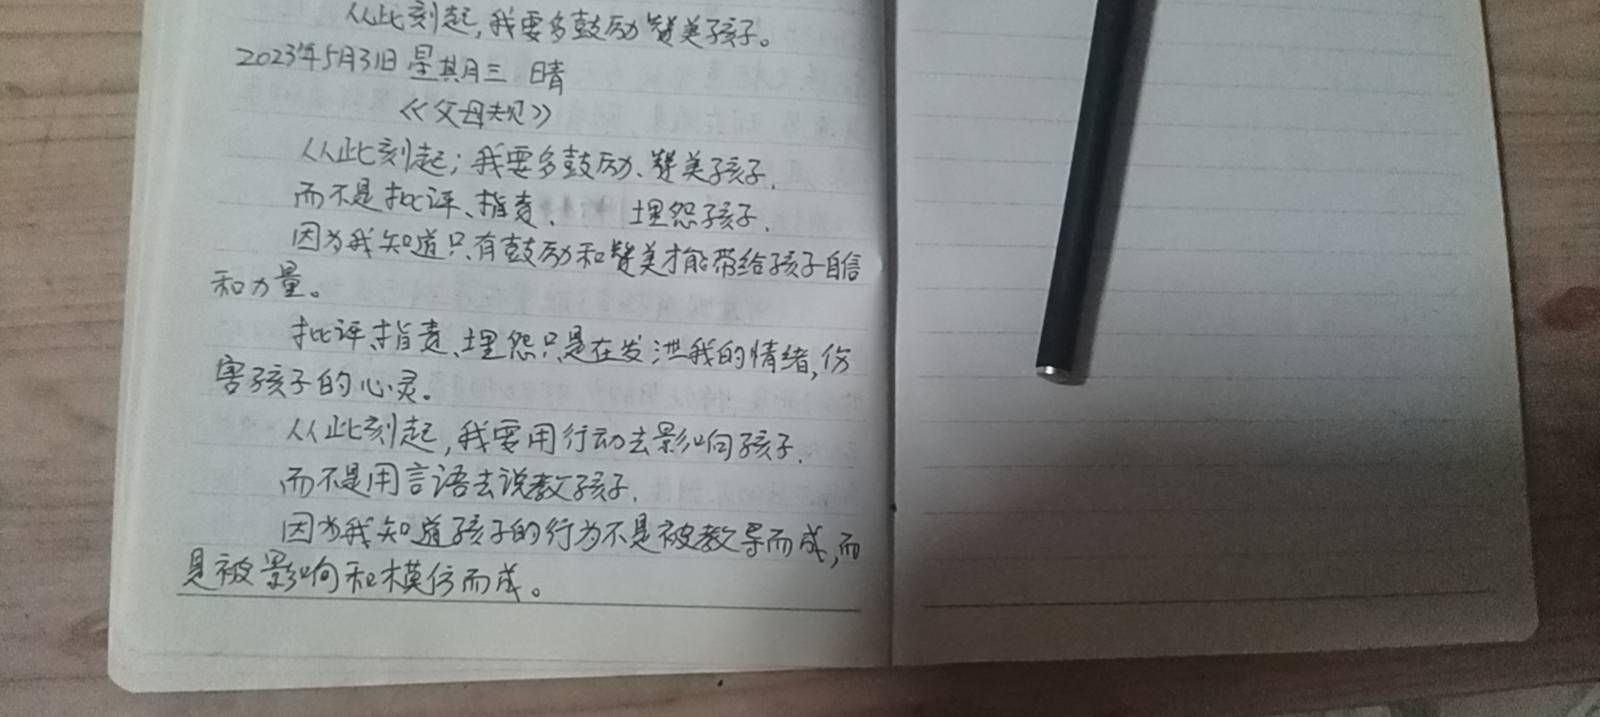 从此刻起,我要多鼓励赞美孩子。
2023年5月31日 星期三 晴
《父母规》
从此刻起;我要多鼓励、赞美孩子,
而不是批评、指责、 埋怨孩子.
因为我知道只有鼓励和赞美才能带给孩子自信
和力量。
批评、指责、埋怨只是在发泄我的情绪,伤
害孩子的心灵。
从此刻起,我要用行动去影响孩子.
而不是用言语去说教孩子.
因为我知道孩子的行为不是被教导而成,而
是被影响和模仿而成。